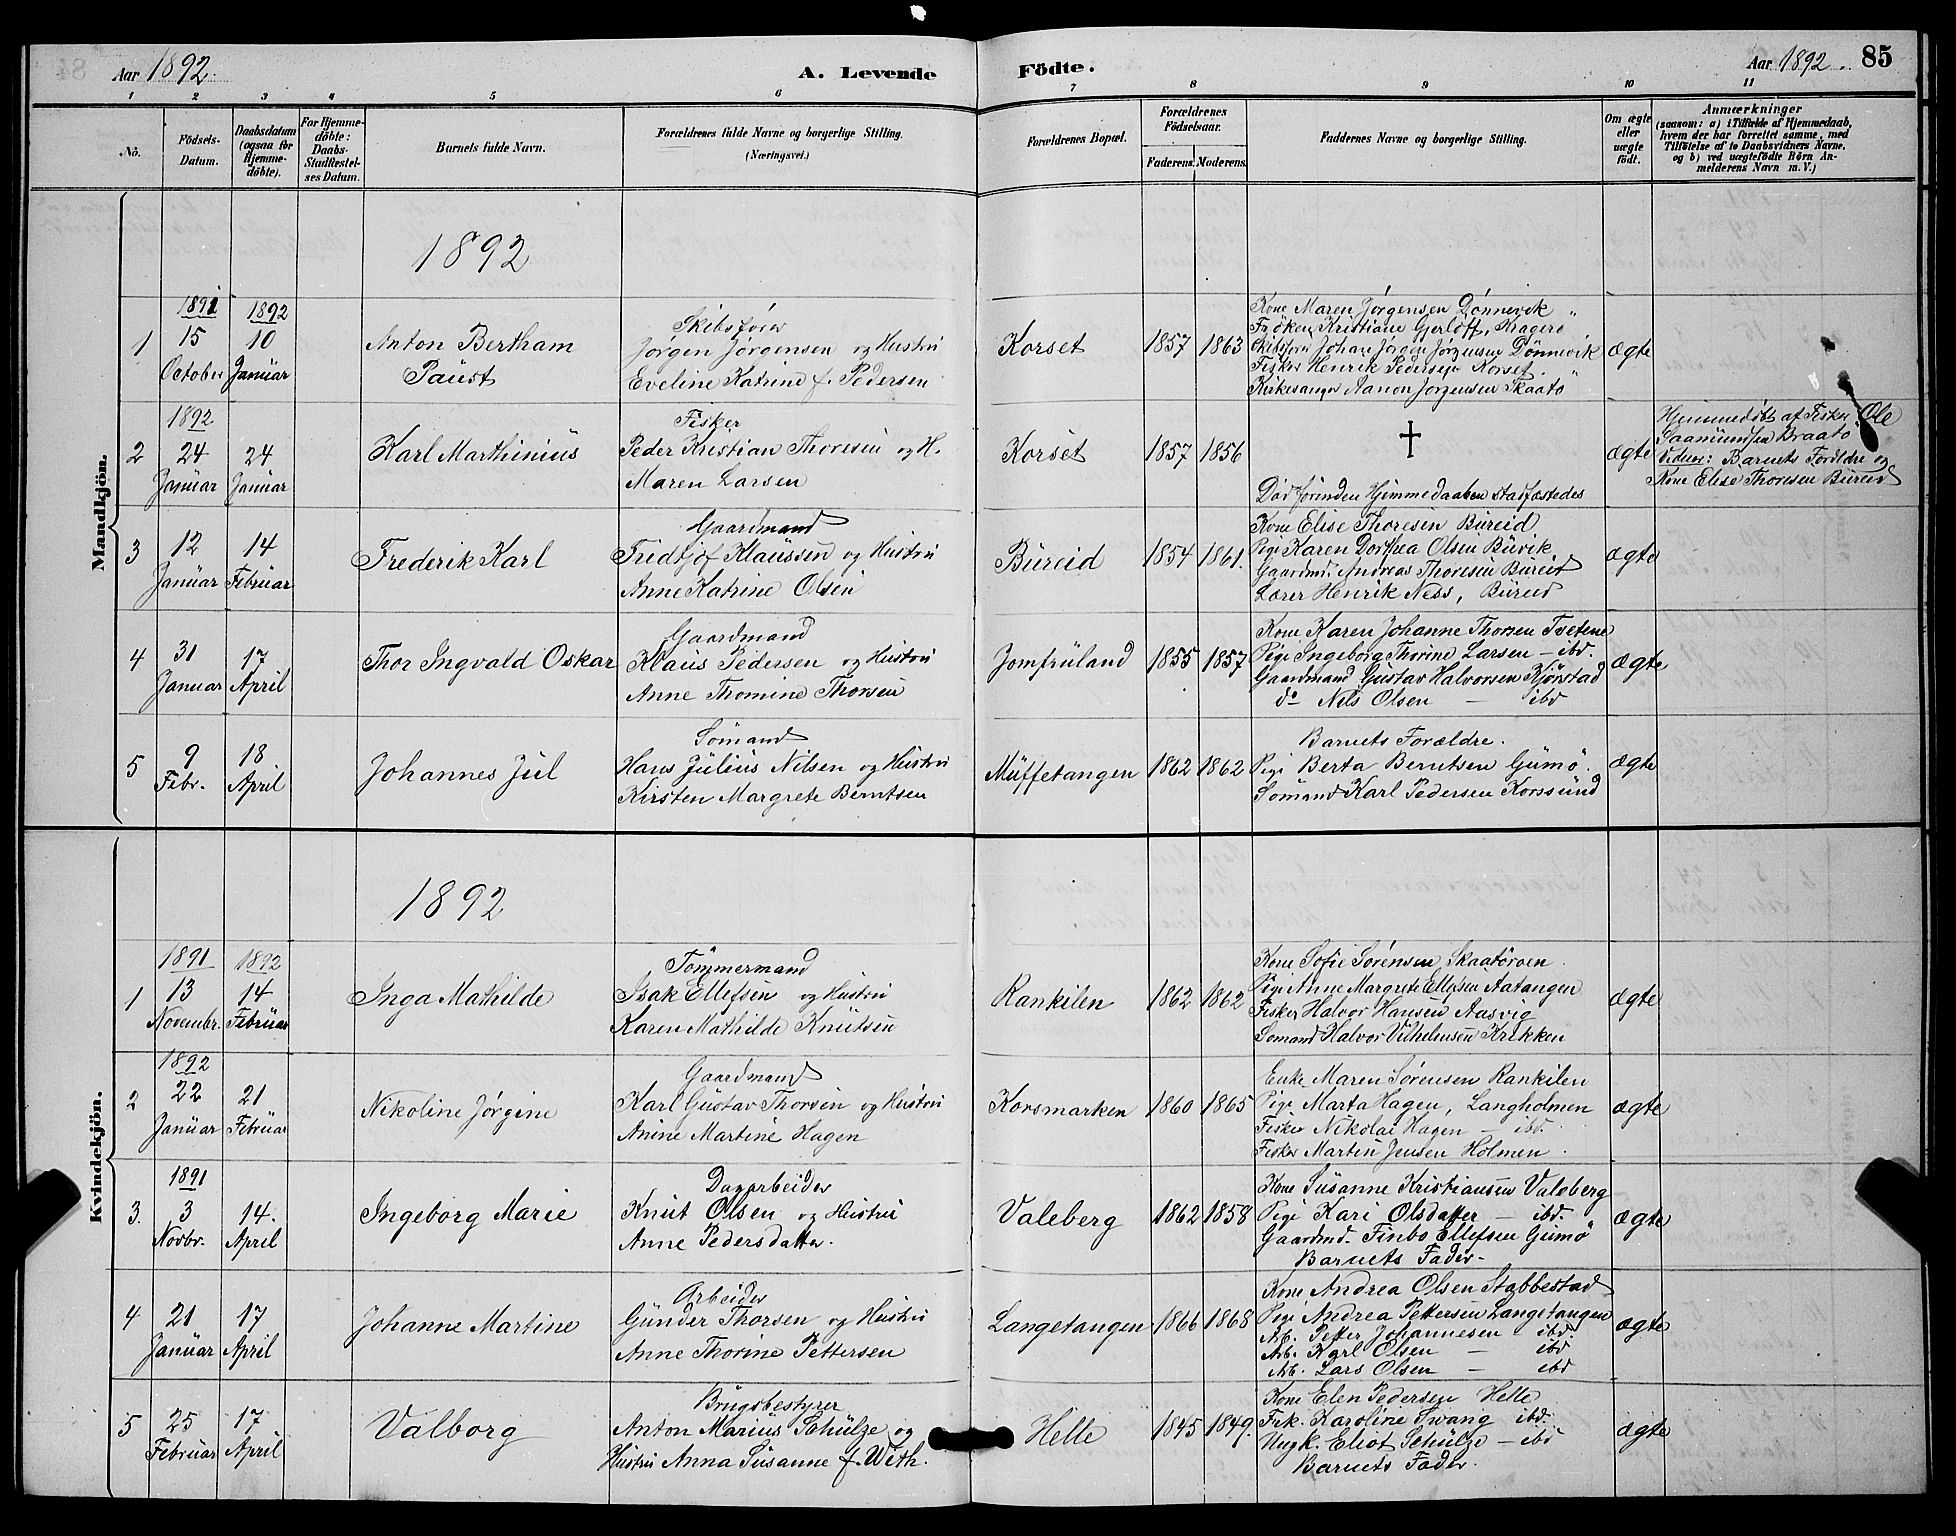 Aar 1892.
A. Levende
Födte.
Aar 1892.
85
1 2 3 4 5 6 7 8 9 10 11
No.
Födsels-
Datum.
Daabsdatum
(ogsaa for
Hjemme-
döbte).
For Hjemme-
döbte:
Daabs-
Stadfæstel-
ses Datum.
Barnets fulde Navn.
Forældrenes fulde Navne og borgerlige Stilling.
(Næringsvei.)
Forældrenes Bopæl.
Forældrenes
Födselsaar.
Faderens. Moderens.
Faddernes Navne og borgerlige Stilling.
Om ægte
eller
uægte
födt.
Anmærkninger
(saasom: a) i Tilfælde af Hjemmedaab,
hvem der har forrettet samme, med
Tilföielse af to Daabsvidners Navne,
og b) ved uægtefödte Börn An-
melderens Navn m. V.)
Mandkjön.
1892
1
1891
15
October
1892
10
Januar
Anton Bertham
Paust
Skibsfører
Jørgen Jørgensen og Hustru
Eveline Katrine f. Pedersen
Korset
1857
1863
Kone Maren Jørgensen Dønnevik
Frøken Kristiane Gjerløff, Kragerø
Skibsfører Johan Jørgen Jørgensen Dønnevik
Fisker Henrik Pedersen Korset.
Kirkesanger Aanon Jørgensen Skaatø
ægte
2
1892
24
Januar
24
Januar
Karl Marthinius
Fisker
Peder Kristian Thoresen og H.
Maren Larsen
Korset
1857
1856
†
Død førinden Hjemmedaaben stadfæstedes
ægte
Hjemmedøbt af Fisker Ole
Saamundsen Braatø
Vidner: Barnets Forældre og
Kone Elise Thoresen Bureid
3
12
Januar
14
Februar
Frederik Karl
Gaardmand
Fridtjof Klaussen og Hustru
Anne Katrine Olsen
Bureid
1854
1861.
Kone Elise Thoresen Bureid
Pige Karen Dorthea Olsen Buvik
Gaardmd. Andreas Thoresen Bureid
Lærer Henrik Ness, Bureid
ægte
4
31
Januar
17
April
Thor Ingvald Oskar
Gaardmand
Klaus Pedersen og Hustru
Anne Thomine Thorsen
Jomfruland
1855
1857
Kone Karen Johanne Thorsen Tvetene
Pige Ingeborg Thorine Larsen — ibd.
Gaardmand Gustav Halvorsen Kjørstad
do Nils Olsen — ibd
ægte
5
9
Febr.
18
April
Johannes Jul
Sømand
Hans Julius Nilsen og Hustru
Kirsten Margrete Berntsen
Muffetangen
1862
1862
Barnets Forældre.
Pige Berta Berntsen Gumø.
Sømand Karl Pedersen Korssund
ægte
Kvindekjön.
1892
1
1891
13
Novembr.
1892
14
Februar
Inga Mathilde
Tømmermand
Isak Ellefsen og Hustru
Karen Mathilde Knutsen
Rankilen
1862
1862
Kone Sofie Sørensen Skaatøroen
Pige Anne Margrete Ellefsen Aatangen
Fisker Halvor Hansen Aasvig
Sømand Halvor Vilhelmsen Krikken
ægte
2
1892
22
Januar
21
Februar
Nikoline Jørgine
Gaardmand
Karl Gustav Thorsen og Hustru
Anine Martine Hagen
Korsmarken
1860
1865
Enke Maren Sørensen Rankilen
Pige Marta Hagen, Langholmen
Fisker Nikolai Hagen — ibd.
Fisker Martin Jensen Holmen
ægte
3.
1891
3
Novbr.
14.
April
Ingeborg Marie
Dagarbeider
Knut Olsen og Hustru
Anne Pedersdatter.
Valeberg
1862
1858
Kone Susanne Kristiansen Valeberg
Pige Kari Olsdatter — ibd.
Gaardmd. Finbo Ellefsen Gumø
Barnets Fader.
ægte
4
21
Januar
17
April
Johanne Martine
Arbeider
Gunder Thorsen og Hustru
Anne Thorine Pettersen
Langetangen
1866
1868
Kone Andrea Olsen Stabbestad
Pige Andrea Pettersen Langetangen
Arb. Petter Johannesen — ibd.
Arb. Karl Olsen — ibd
Arb. Lars Olsen — ibd
ægte
5
25
Februar
17
April
Valborg
Brugsbestyrer
Anton Marius Schulze og
Hustru Anna Susanne f. With.
Helle
1845
1849.
Kone Elen Pedersen Helle
Frk. Karoline Swang ibd.
Ungk. Eliot Schulze — ibd
Barnets Fader.
ægte